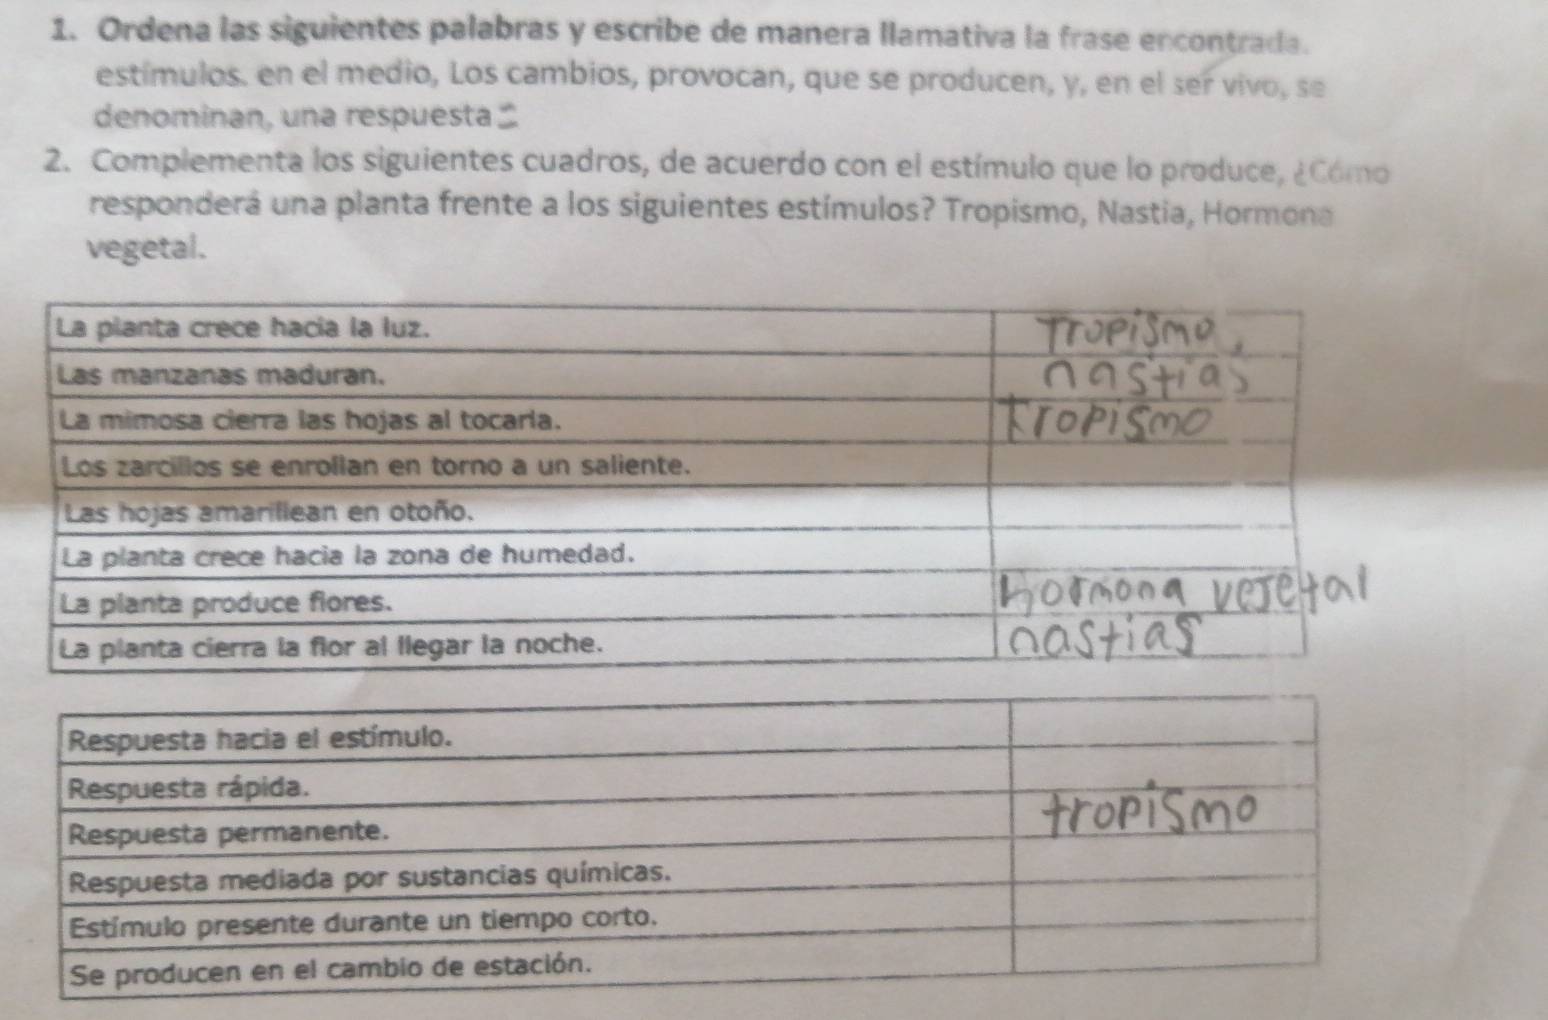 1. Ordena las siguientes palabras y escribe de manera llamativa la frase encontrada.
estímulos. en el medio, Los cambios, provocan, que se producen, y, en el ser vivo, se
denominan, una respuesta
2. Complementa los siguientes cuadros, de acuerdo con el estímulo que lo produce, ¿Cómo
responderá una planta frente a los siguientes estímulos? Tropismo, Nastia, Hormona
vegetal.
La planta crece hacia la luz. Tropismo,
Las manzanas maduran. nastias
La mimosa cierra las hojas al tocarla. tropismo
Los zarcillos se enrollan en torno a un saliente.
Las hojas amarillean en otoño.
La planta crece hacia la zona de humedad.
La planta produce flores. hormona vegetal
La planta cierra la flor al llegar la noche. nastias
Respuesta hacia el estímulo.
Respuesta rápida.
Respuesta permanente. tropismo
Respuesta mediada por sustancias químicas.
Estímulo presente durante un tiempo corto.
Se producen en el cambio de estación.